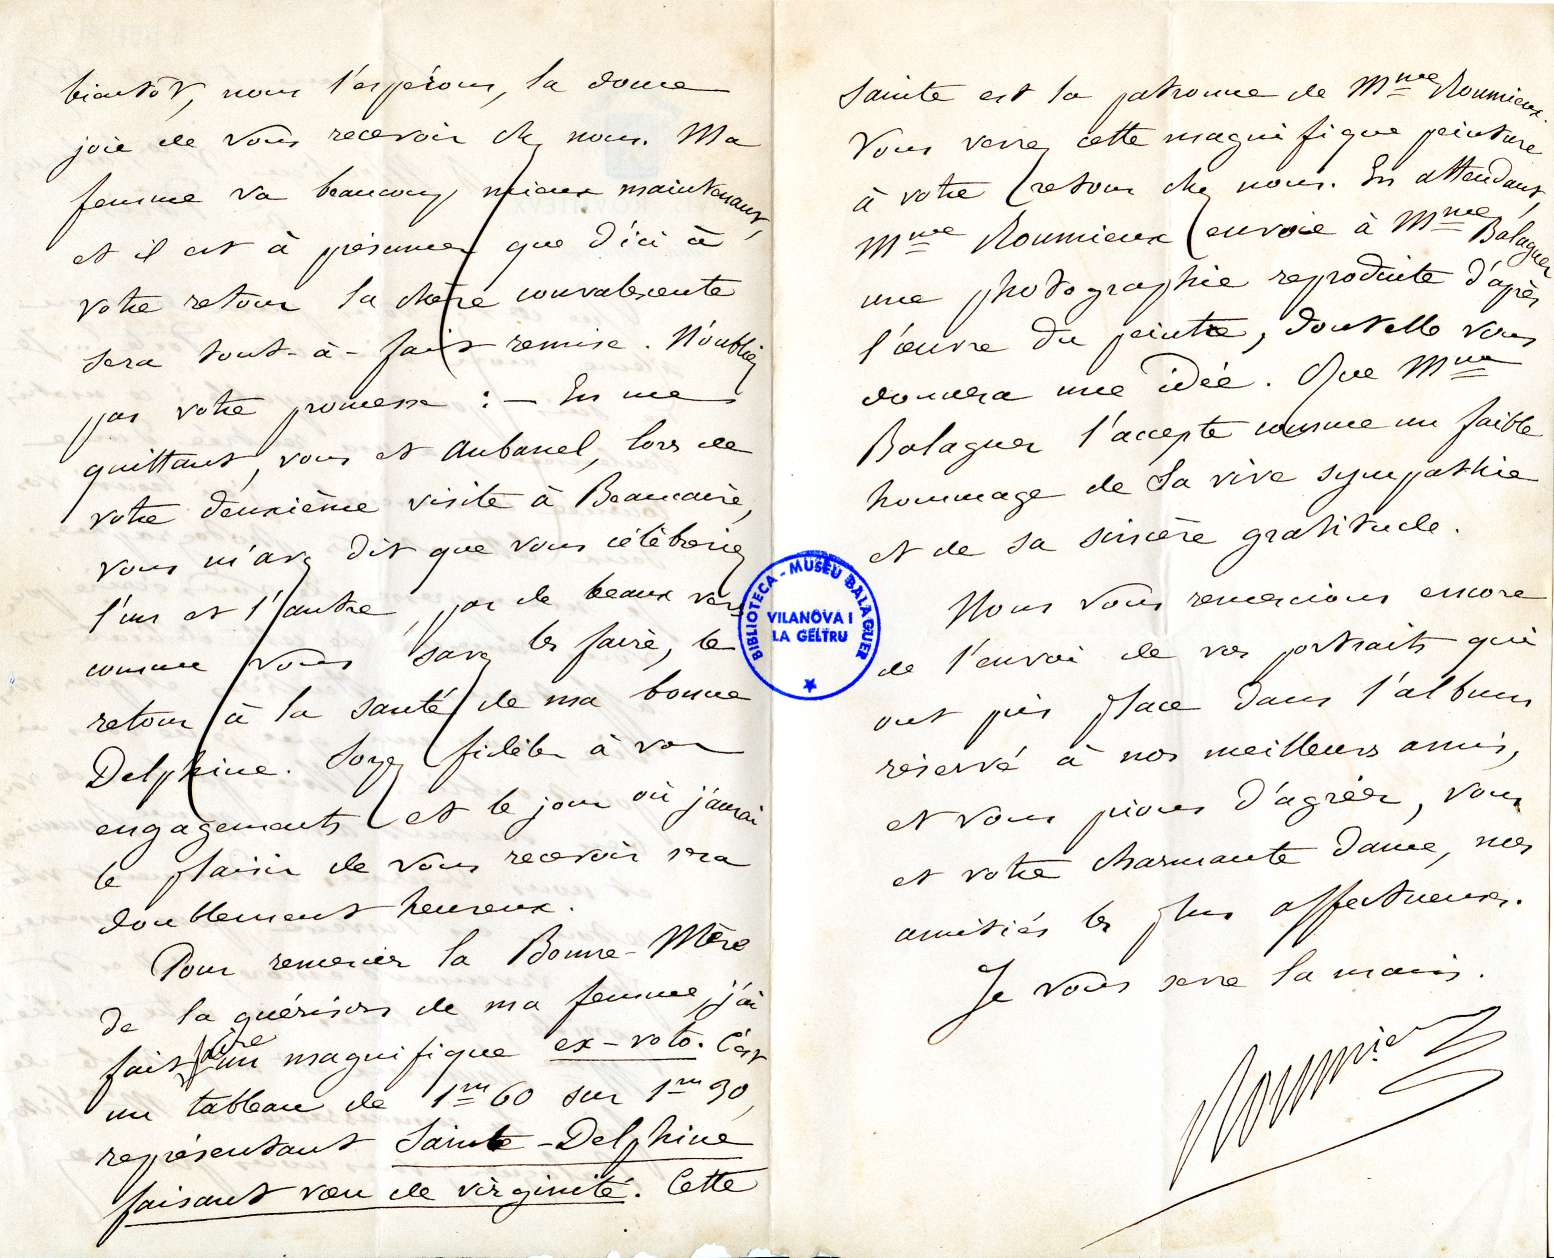 bientôt, nous l'espérons, la douce
joie de vous recevoir chez nous. Ma
femme va beaucoup mieux maintenant,
et il est à présumer que d'ici à
votre retour la chère convalescente
sera tout-à-fait remise. N'oubliez
pas votre promesse : — En me
quittant, vous et Aubanel, lors de
votre deuxième visite à Beaucaire,
vous m'avez dit que vous célébreriez
l'un et l'autre, par de beaux vers
comme vous savez les faire, le
retour à la santé de ma bonne
Delphine. Soyez fidèles à vos
engagements et le jour où j'aurai
le plaisir de vous recevoir sera
doublement heureux.
Pour remercier la Bonne-Mère
de la guérison de ma femme, j'ai
fait faire un magnifique ex-voto. C'est
un tableau de 1m60 sur 1m90,
représentant Sainte-Delphine
faisant vœu de virginité. Cette
Sainte est la patronne de Mme Roumieux.
Vous verrez cette magnifique peinture
à votre retour chez nous. En attendant,
Mme Roumieux envoie à Mme Balaguer
une photographie reproduite d'après
l'œuvre du peintre, dont elle vous
donnera une idée. Que Mme
Balaguer l'accepte comme un faible
hommage de sa vive sympathie
et de sa sincère gratitude.
Nous vous remercions encore
de l'envoi de vos portraits qui
ont pris place dans l'album
réservé à nos meilleurs amis,
et vous prions d'agréer, vous
et votre charmante dame, nos
amitiés les plus affectueuses.
Je vous serre la main.
Roumieux
BIBLIOTECA-MUSEU BALAGUER
VILANOVA I
LA GELTRU